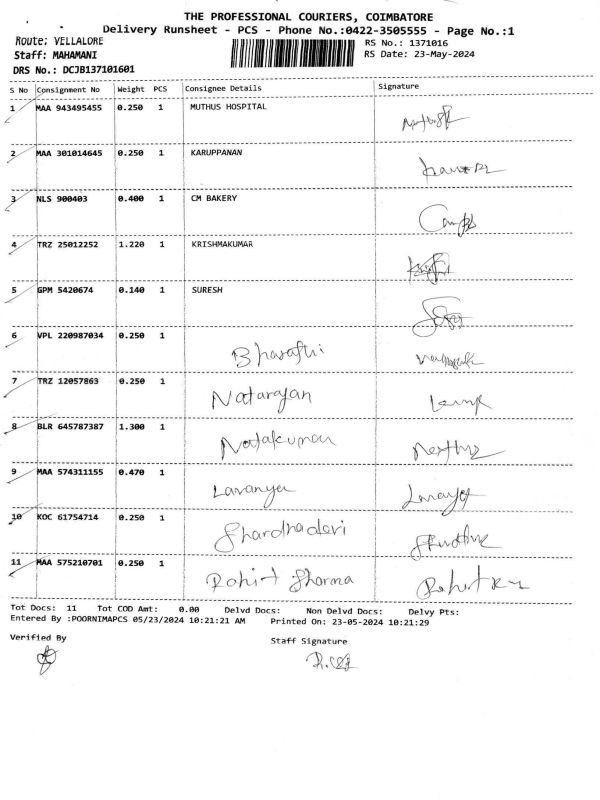 THE PROFESSIONAL COURIERS, COIMBATORE
Delivery Runsheet - PCS - Phone No.:0422-3505555 - Page No.:1
Route: VELLALORE
RS No.: 1371016
Staff: MAHAMANI
RS Date: 23-May-2024
DRS No.: DCJB137101601
S No Consignment No Weight PCS Consignee Details Signature
1 MAA 943495455 0.250 1 MUTHUS HOSPITAL
2 MAA 301014645 0.250 1 KARUPPANAN
3 NLS 900403 0.400 1 CM BAKERY
4 TRZ 25012252 1.220 1 KRISHMAKUMAR
5 GPM 5420674 0.140 1 SURESH
6 VPL 220987034 0.250 1 Bharathi
7 TRZ 12057863 0.250 1 Natarajan
8 BLR 645787387 1.300 1 Natakumar
9 MAA 574311155 0.470 1 Lavanya
10 KOC 61754714 0.250 1 Shardhadevi
11 MAA 575210701 0.250 1 Rohit Sharma
Tot Docs: 11 Tot COD Amt: 0.00 Delvd Docs: Non Delvd Docs: Delvy Pts:
Entered By :POORNIMAPCS 05/23/2024 10:21:21 AM Printed On: 23-05-2024 10:21:29
Verified By Staff Signature